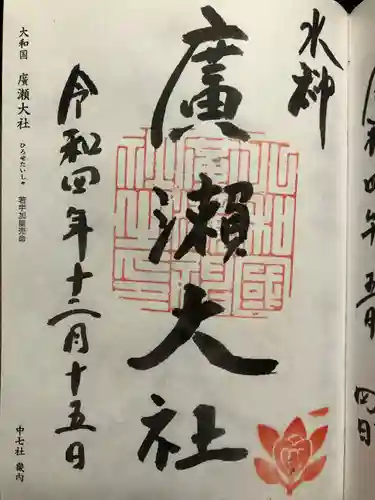 水神
廣瀬大社
令和四年十二月十五日
大和国 廣瀬大社
ひろせたいしゃ
若宇加能売命
中七社 畿内
五月
四日